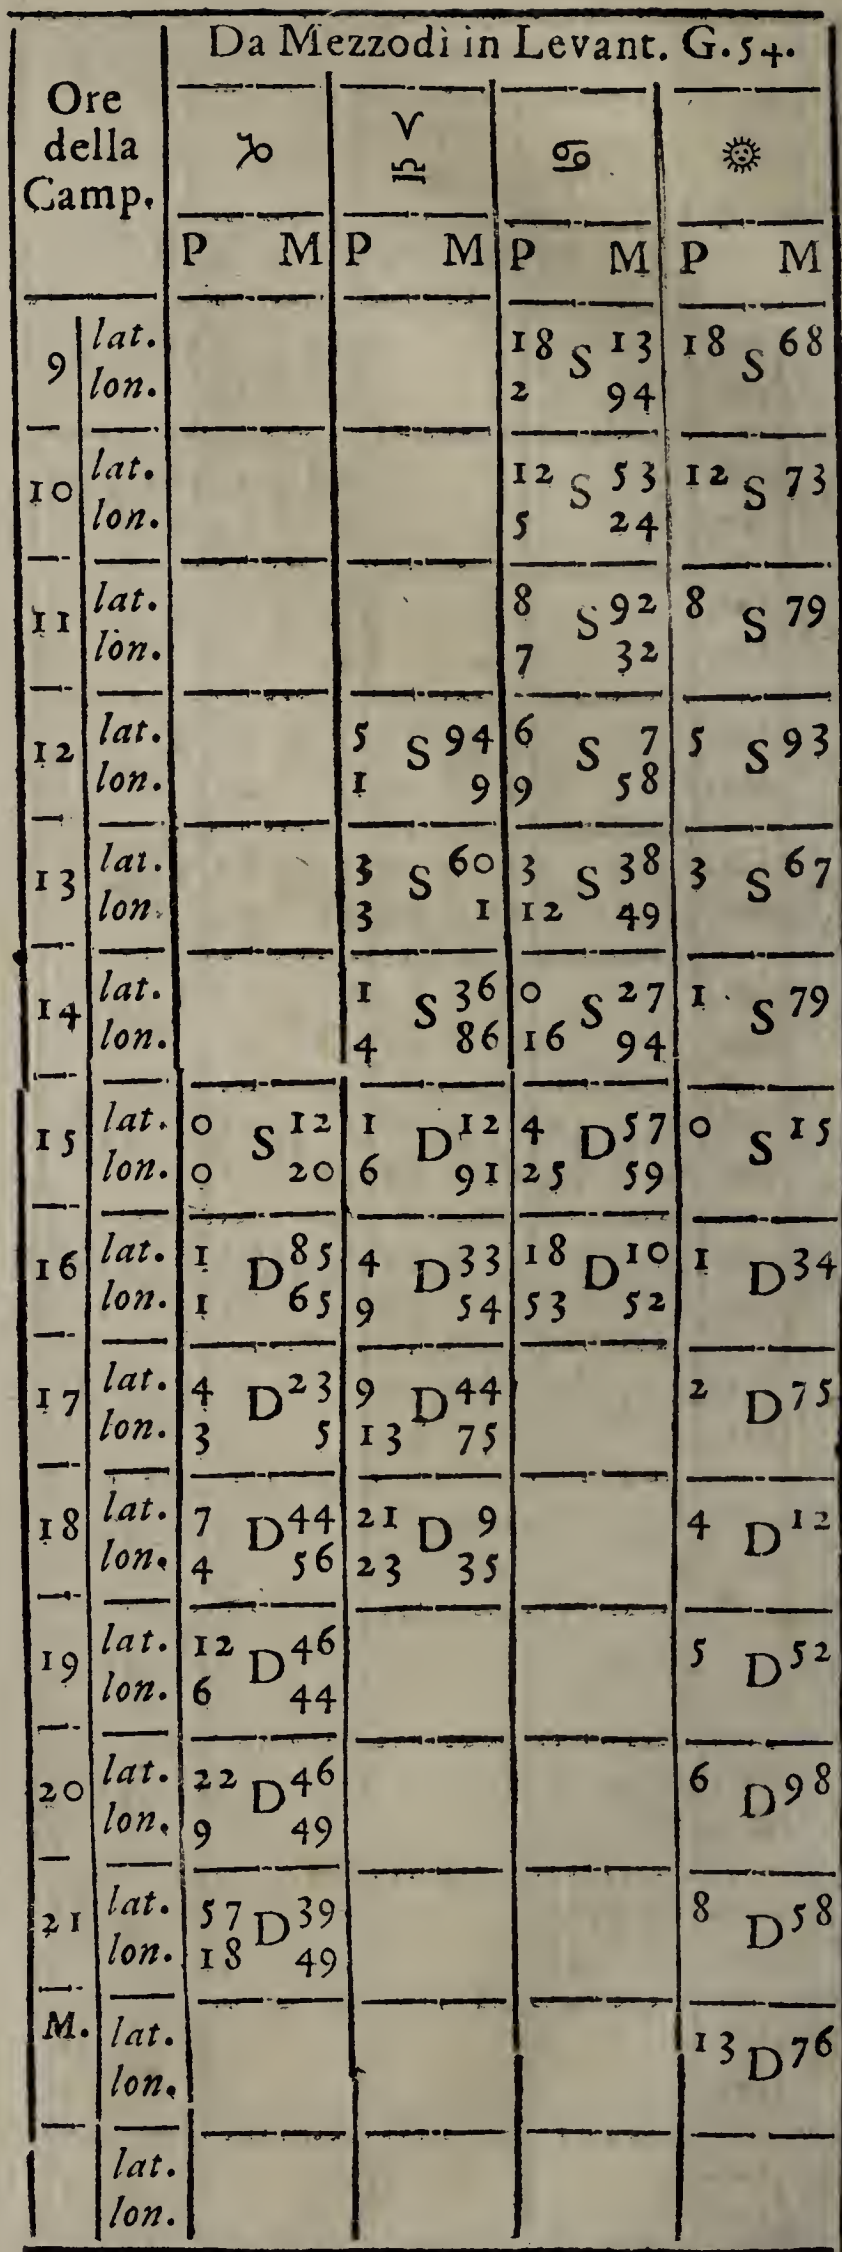 Da Mezzodì in Levant. G. 54.
Ore
della
Camp.
♑ ♈ ♎ ♋ ☀
P M P M P M P M
9 lat. 18 S 13 18 S 68
lon. 2 94
10 lat. 12 S 53 12 S 73
lon. 5 24
11 lat. 8 S 92 8 S 79
lon. 7 32
12 lat. 5 S 94 6 S 7 5 S 93
lon. 1 9 9 58
13 lat. 3 S 60 3 S 38 3 S 67
lon. 3 1 12 49
14 lat. 1 S 36 0 S 27 1 S 79
lon. 4 86 16 94
15 lat. 0 S 12 1 D 12 4 D 57 0 S 15
lon. 0 20 6 91 25 59
16 lat. 1 D 85 4 D 33 18 D 10 1 D 34
lon. 1 65 9 54 53 52
17 lat. 4 D 23 9 D 44 2 D 75
lon. 3 5 13 75
18 lat. 7 D 44 21 D 9 4 D 12
lon. 4 56 23 35
19 lat. 12 D 46 5 D 52
lon. 6 44
20 lat. 22 D 46 6 D 98
lon. 9 49
21 lat. 57 D 39 8 D 58
lon. 18 49
M. lat. 13 D 76
lon.
lat.
lon.